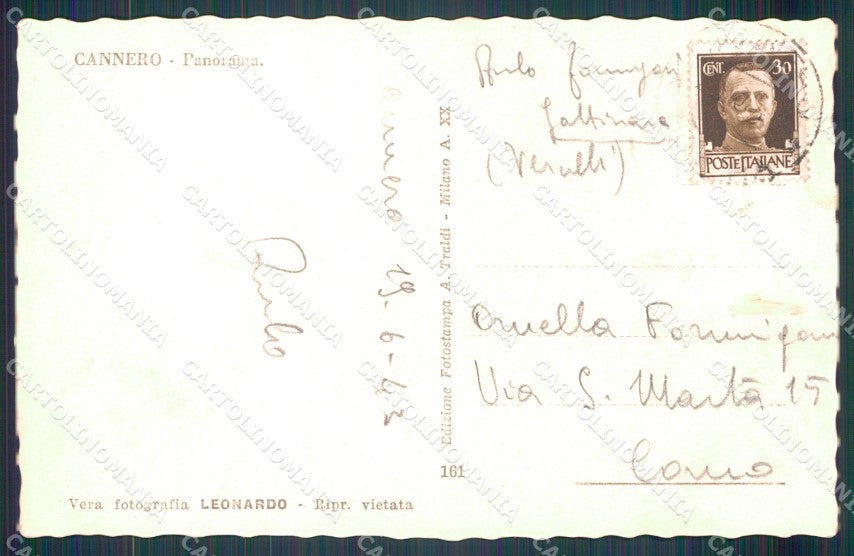 CANNERO - Panorama.
Cannero 19-6-42
Paolo
Vera fotografia LEONARDO - Ripr. vietata
Edizione Fotostampa A. Traldi - Milano A. XX
161
Gattinara
(Vercelli)
CENT. 30
POSTE ITALIANE
Ornella Formigoni
Via S. Marta 15
Como
CARTOLINOMANIA